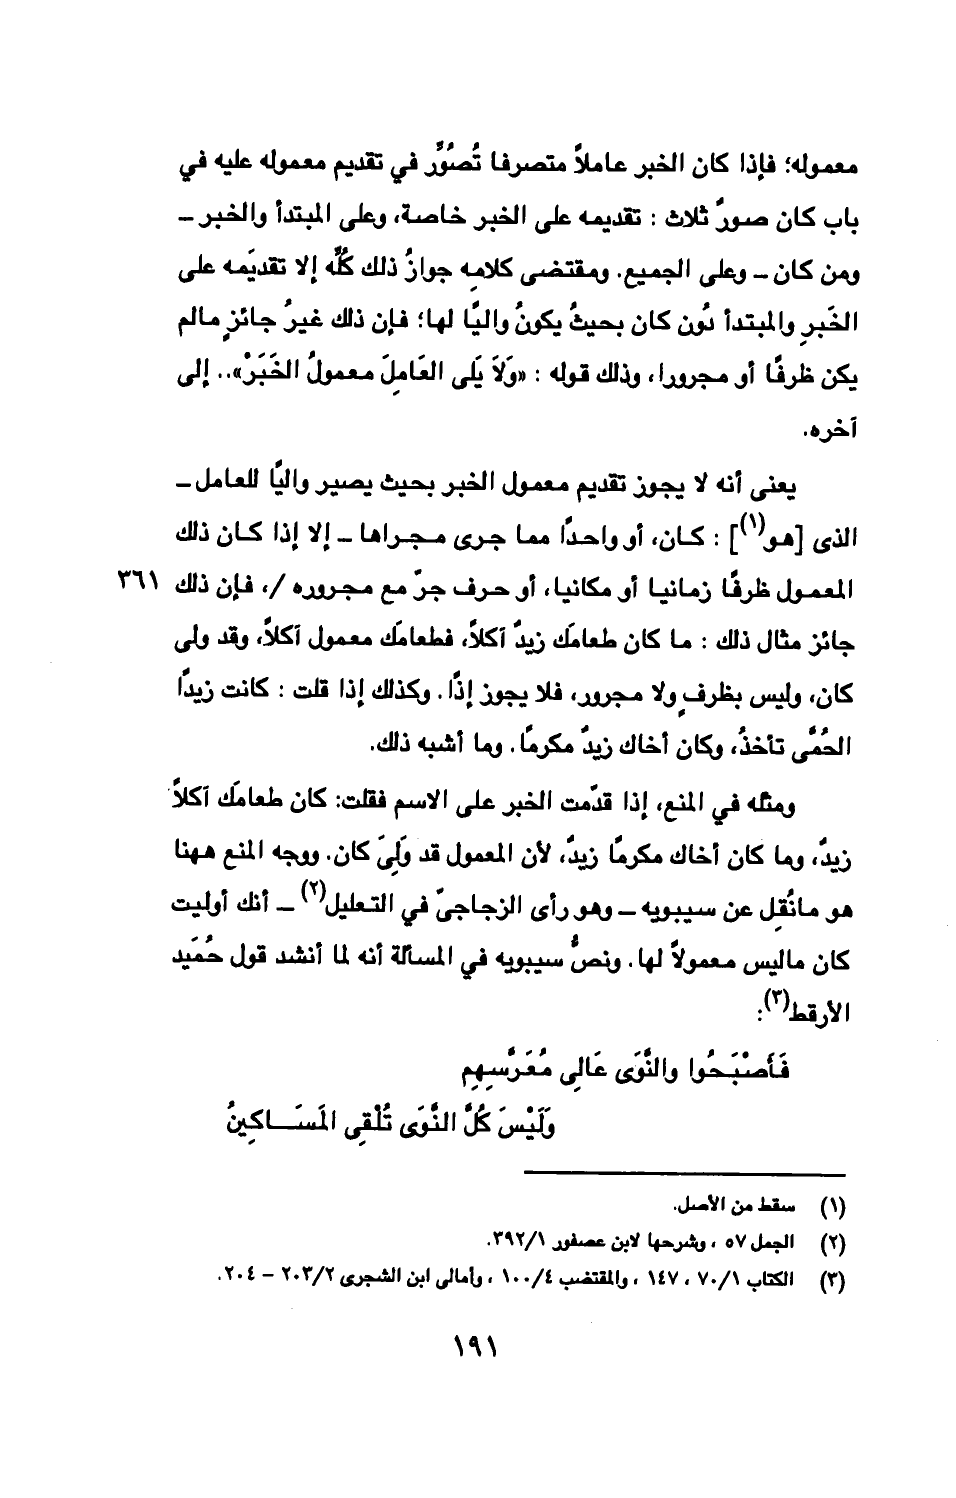 معموله؛ فإذا كان الخبر عاملاً متصرفا تُصُوِّر في تقديم معموله عليه في
باب كان صورٌ ثلاث : تقديمه على الخبر خاصة، وعلى المبتدأ والخبر –
ومن كان – وعلى الجميع. ومقتضى كلامِه جوازُ ذلك كُلِّه إلا تقديمَه على
الخَبرِ والمبتدأ دُون كان بحيثُ يكونُ واليًا لها؛ فإن ذلك غيرُ جائزٍ مالم
يكن ظرفًا أو مجرورا، وذلك قوله : «وَلاَ يَلِى العَامِلَ معمولُ الخَبَرْ».. إلى
آخره.
يعنى أنه لا يجوز تقديم معمول الخبر بحيث يصير واليًا للعامل –
الذى [هو(١)] : كان، أو واحدًا مما جرى مجراها – إلا إذا كان ذلك
المعمول ظرفًا زمانيا أو مكانيا، أو حرف جرّ مع مجروره /، فإن ذلك ٣٦١
جائز مثال ذلك : ما كان طعامَك زيدٌ آكلاً، فطعامَك معمول آكلاً، وقد ولى
كان، وليس بظرفٍ ولا مجرور، فلا يجوز إذًا. وكذلك إذا قلت : كانت زيدًا
الحُمَّى تأخذُ، وكان أخاك زيدٌ مكرمًا. وما أشبه ذلك.
ومثله في المنع، إذا قدّمت الخبر على الاسم فقلت: كان طعامَك آكلاً
زيدٌ، وما كان أخاك مكرمًا زيدٌ، لأن المعمول قد وَلِىَ كان. ووجه المنع ههنا
هو مانُقِل عن سيبويه – وهو رأى الزجاجىّ في التعليل(٢) – أنك أوليت
كان ماليس معمولاً لها. ونصُّ سيبويه في المسألة أنه لما أنشد قول حُمَيد
الأرقط(٣):
فَأَصْبَحُوا والنَّوَى عَالِى مُعَرَّسِهِم
وَلَيْسَ كُلَّ النَّوَى تُلْقِى المَسَــاكِينُ
(١) سقط من الأصل.
(٢) الجمل ٥٧ ، وشرحها لابن عصفور ٣٩٢/١.
(٣) الكتاب ٧٠/١ ، ١٤٧ ، والمقتضب ١٠٠/٤ ، وأمالى ابن الشجرى ٢٠٣/٢ – ٢٠٤.
١٩١